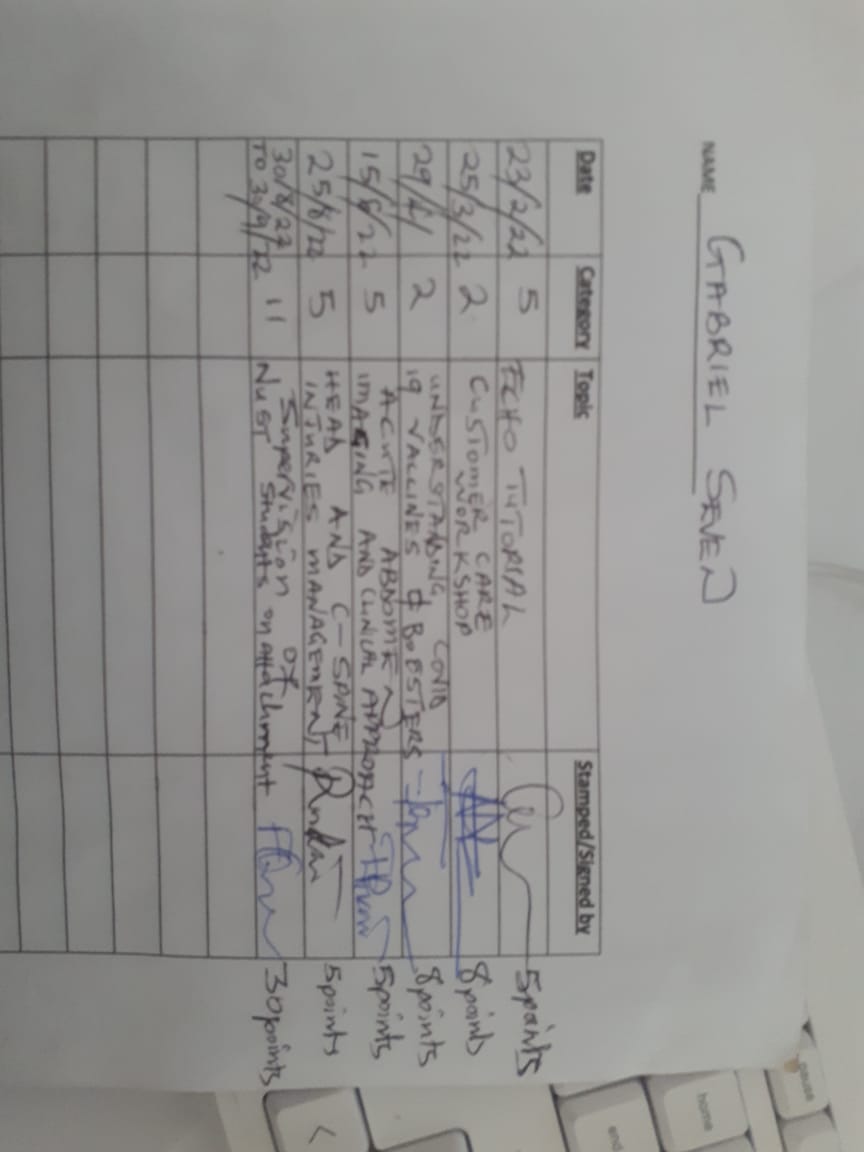 NAME GABRIEL SEVEN
Date Category Topic Stamped/Signed by
23/2/22 5 ECHO TUTORIAL 5 points
25/3/22 2 CUSTOMER CARE
WORKSHOP 8 points
29/4/ 2 UNDERSTANDING COVID
19 VACCINES & BOOSTERS 8 points
15/6/22 5 ACUTE ABDOMEN
IMAGING AND CLINICAL APPROACH 5 points
25/8/22 5 HEAD AND C-SPINE
INJURIES MANAGEMENT 5 points
30/8/22 Supervision of
TO 30/9/22 11 NUST students on attachment 30 points
pause
home
end
<